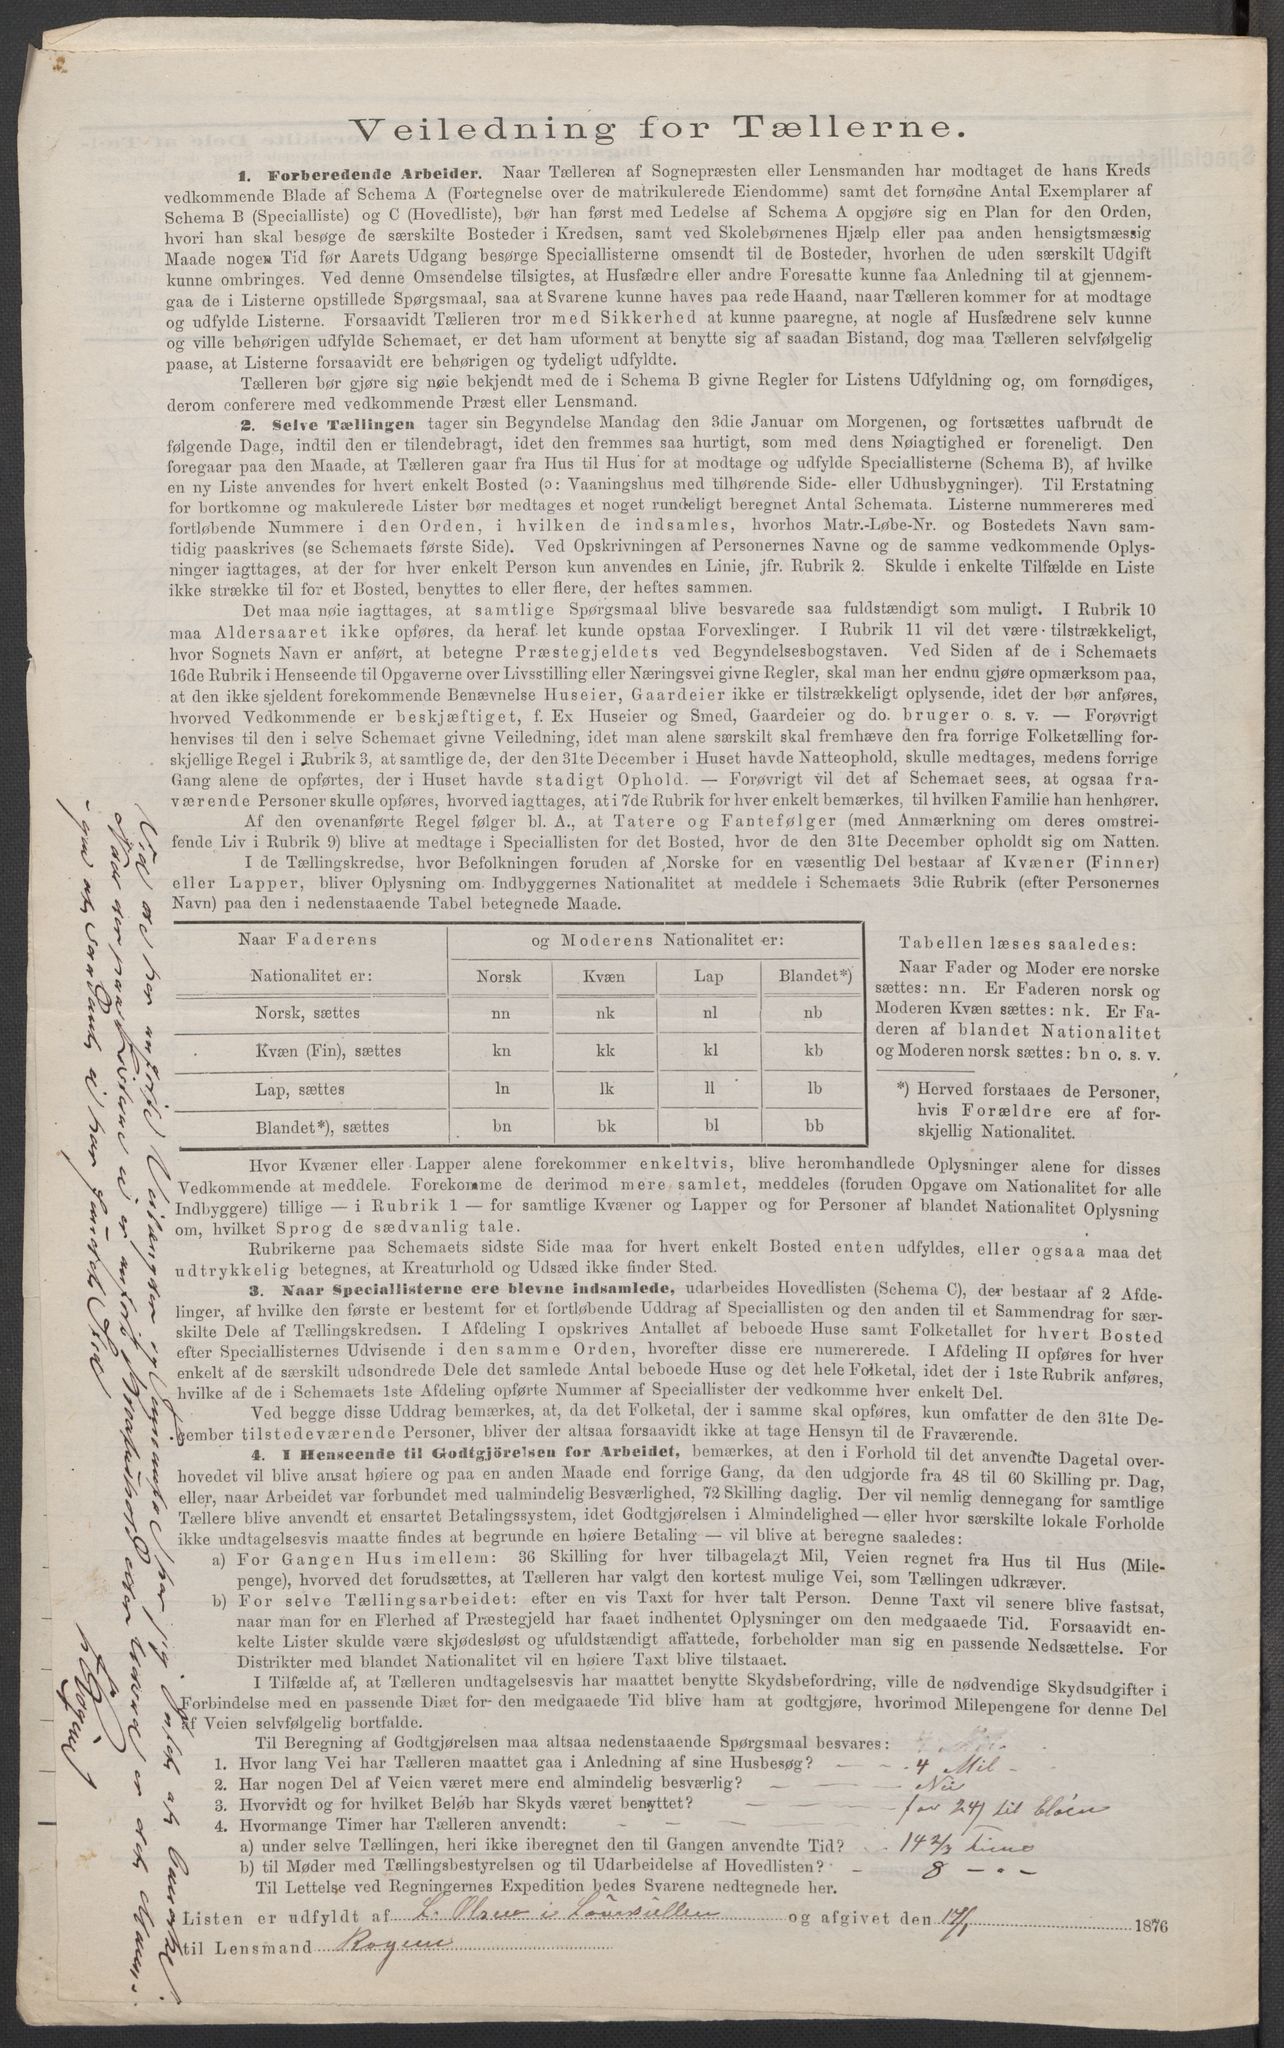 Veiledning for Tællerne.
1. Forberedende Arbeider. Naar Tælleren af Sognepræsten eller Lensmanden har modtaget de hans Kreds
vedkommende Blade af Schema A (Fortegnelse over de matrikulerede Eiendomme) samt det fornødne Antal Exemplarer af
Schema B (Specialliste) og C (Hovedliste), bør han først med Ledelse af Schema A opgjøre sig en Plan for den Orden,
hvori han skal besøge de særskilte Bosteder i Kredsen, samt ved Skolebørnenes Hjælp eller paa anden hensigtsmæssig
Maade nogen Tid før Aarets Udgang besørge Speciallisterne omsendt til de Bosteder, hvorhen de uden særskilt Udgift
kunne ombringes. Ved denne Omsendelse tilsigtes, at Husfædre eller andre Foresatte kunne faa Anledning til at gjennem-
gaa de i Listerne opstillede Spørgsmaal, saa at Svarene kunne haves paa rede Haand, naar Tælleren kommer for at modtage
og udfylde Listerne. Forsaavidt Tælleren tror med Sikkerhed at kunne paaregne, at nogle af Husfædrene selv kunne
og ville behørigen udfylde Schemaet, er det ham uforment at benytte sig af saadan Bistand, dog maa Tælleren selvfølgelig
paase, at Listerne forsaavidt ere behørigen og tydeligt udfyldte.
Tælleren bør gjøre sig nøie bekjendt med de i Schema B givne Regler for Listens Udfyldning og, om fornødiges,
derom conferere med vedkommende Præst eller Lensmand.
2. Selve Tællingen tager sin Begyndelse Mandag den 3die Januar om Morgenen, og fortsættes uafbrudt de
følgende Dage, indtil den er tilendebragt, idet den fremmes saa hurtigt, som med dens Nøiagtighed er foreneligt. Den
foregaar paa den Maade, at Tælleren gaar fra Hus til Hus for at modtage og udfylde Speciallisterne (Schema B), af hvilke
en ny Liste anvendes for hvert enkelt Bosted (ɔ: Vaaningshus med tilhørende Side- eller Udhusbygninger). Til Erstatning
for bortkomne og makulerede Lister bør medtages et noget rundeligt beregnet Antal Schemata. Listerne nummereres med
fortløbende Nummere i den Orden, i hvilken de indsamles, hvorhos Matr.-Løbe-Nr. og Bostedets Navn sam-
tidig paaskrives (se Schemaets første Side). Ved Opskrivningen af Personernes Navne og de samme vedkommende Oplys-
ninger iagttages, at der for hver enkelt Person kun anvendes en Linie, jfr. Rubrik 2. Skulde i enkelte Tilfælde en Liste
ikke strække til for et Bosted, benyttes to eller flere, der heftes sammen.
Det maa nøie iagttages, at samtlige Spørgsmaal blive besvarede saa fuldstændigt som muligt. I Rubrik 10
maa Aldersaaret ikke opføres, da heraf let kunde opstaa Forvexlinger. I Rubrik 11 vil det være tilstrækkeligt,
hvor Sognets Navn er anført, at betegne Præstegjeldets ved Begyndelsesbogstaven. Ved Siden af de i Schemaets
16de Rubrik i Henseende til Opgaverne over Livsstilling eller Næringsvei givne Regler, skal man her endnu gjøre opmærksom paa,
at den ikke sjeldent forekommende Benævnelse Huseier, Gaardeier ikke er tilstrækkeligt oplysende, idet der bør anføres,
hvorved Vedkommende er beskjæftiget, f. Ex Huseier og Smed, Gaardeier og do. bruger o. s. v. — Forøvrigt
henvises til den i selve Schemaet givne Veiledning, idet man alene særskilt skal fremhæve den fra forrige Folketælling for-
skjellige Regel i Rubrik 3, at samtlige de, der den 31te December i Huset havde Natteophold, skulle medtages, medens forrige
Gang alene de opførtes, der i Huset havde stadigt Ophold. — Forøvrigt vil det af Schemaet sees, at ogsaa fra-
værende Personer skulle opføres, hvorved iagttages, at i 7de Rubrik for hver enkelt bemærkes, til hvilken Familie han henhører.
Af den ovenanførte Regel følger bl. A., at Tatere og Fantefølger (med Anmærkning om deres omstrei-
fende Liv i Rubrik 9) blive at medtage i Speciallisten for det Bosted, hvor de den 31te December opholdt sig om Natten.
I de Tællingskredse, hvor Befolkningen foruden af Norske for en væsentlig Del bestaar af Kvæner (Finner)
eller Lapper, bliver Oplysning om Indbyggernes Nationalitet at meddele i Schemaets 3die Rubrik (efter Personernes
Navn) paa den i nedenstaaende Tabel betegnede Maade.
Naar Faderens og Moderens Nationalitet er:
Nationalitet er: Norsk Kvæn Lap Blandet*)
Norsk, sættes nn nk nl nb
Kvæn (Fin), sættes kn kk kl kb
Lap, sættes ln lk ll lb
Blandet*), sættes bn bk bl bb
Tabellen læses saaledes:
Naar Fader og Moder ere norske
sættes: nn. Er Faderen norsk og
Moderen Kvæn sættes: nk. Er Fa-
deren af blandet Nationalitet
og Moderen norsk sættes: bn o. s. v.
*) Herved forstaaes de Personer,
hvis Forældre ere af for-
skjellig Nationalitet.
Hvor Kvæner eller Lapper alene forekommer enkeltvis, blive heromhandlede Oplysninger alene for disses
Vedkommende at meddele. Forekomme de derimod mere samlet, meddeles (foruden Opgave om Nationalitet for alle
Indbyggere) tillige — i Rubrik 1 — for samtlige Kvæner og Lapper og for Personer af blandet Nationalitet Oplysning
om, hvilket Sprog de sædvanlig tale.
Rubrikerne paa Schemaets sidste Side maa for hvert enkelt Bosted enten udfyldes, eller ogsaa maa det
udtrykkelig betegnes, at Kreaturhold og Udsæd ikke finder Sted.
3. Naar Speciallisterne ere blevne indsamlede, udarbeides Hovedlisten (Schema C), der bestaar af 2 Afde-
linger, af hvilke den første er bestemt for et fortløbende Uddrag af Speciallisten og den anden til et Sammendrag for sær-
skilte Dele af Tællingskredsen. I Afdeling I opskrives Antallet af beboede Huse samt Folketallet for hvert Bosted
efter Speciallisternes Udvisende i den samme Orden, hvorefter disse ere numererede. I Afdeling II opføres for hver
enkelt af de særskilt udsondrede Dele det samlede Antal beboede Huse og det hele Folketal, idet der i 1ste Rubrik anføres,
hvilke af de i Schemaets 1ste Afdeling opførte Nummer af Speciallister der vedkomme hver enkelt Del.
Ved begge disse Uddrag bemærkes, at, da det Folketal, der i samme skal opføres, kun omfatter de den 31te De-
cember tilstedeværende Personer, bliver der altsaa forsaavidt ikke at tage Hensyn til de Fraværende.
4. I Henseende til Godtgjörelsen for Arbeidet, bemærkes, at den i Forhold til det anvendte Dagetal over-
hovedet vil blive ansat høiere og paa en anden Maade end forrige Gang, da den udgjorde fra 48 til 60 Skilling pr. Dag,
eller, naar Arbeidet var forbundet med ualmindelig Besværlighed, 72 Skilling daglig. Der vil nemlig dennegang for samtlige
Tællere blive anvendt et ensartet Betalingssystem, idet Godtgjørelsen i Almindelighed — eller hvor særskilte lokale Forholde
ikke undtagelsesvis maatte findes at begrunde en høiere Betaling — vil blive at beregne saaledes:
a) For Gangen Hus imellem: 36 Skilling for hver tilbagelagt Mil, Veien regnet fra Hus til Hus (Mile-
penge), hvorved det forudsættes, at Tælleren har valgt den kortest mulige Vei, som Tællingen udkræver.
b) For selve Tællingsarbeidet: efter en vis Taxt for hver talt Person. Denne Taxt vil senere blive fastsat,
naar man for en Flerhed af Præstegjeld har faaet indhentet Oplysninger om den medgaaede Tid. Forsaavidt en-
kelte Lister skulde være skjødesløst og ufuldstændigt affattede, forbeholder man sig en passende Nedsættelse. For
Distrikter med blandet Nationalitet vil en høiere Taxt blive tilstaaet.
I Tilfælde af, at Tælleren undtagelsesvis har maattet benytte Skydsbefordring, ville de nødvendige Skydsudgifter i
Forbindelse med en passende Diæt for den medgaaede Tid blive ham at godtgjøre, hvorimod Milepengene for denne Del
af Veien selvfølgelig bortfalde.
Til Beregning af Godtgjørelsen maa altsaa nedenstaaende Spørgsmaal besvares:
1. Hvor lang Vei har Tælleren maattet gaa i Anledning af sine Husbesøg? 4 Mil
2. Har nogen Del af Veien været mere end almindelig besværlig? Nei
3. Hvorvidt og for hvilket Beløb har Skyds været benyttet? for 24 til
4. Hvormange Timer har Tælleren anvendt:
a) under selve Tællingen, heri ikke iberegnet den til Gangen anvendte Tid? 14 2/3 Time
b) til Møder med Tællingsbestyrelsen og til Udarbeidelse af Hovedlisten? 8 — " —
Til Lettelse ved Regningernes Expedition bedes Svarene nedtegnede her.
Listen er udfyldt af L. Olsen i og afgivet den 17/1 1876
til Lensmand